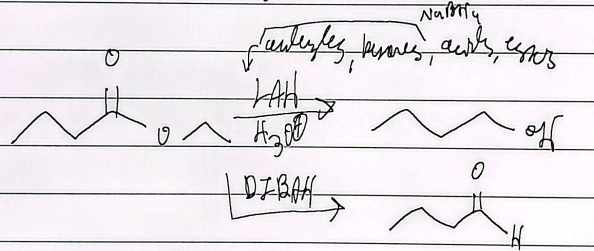 NaBH4
aldehydes, ketones, acids, esters
O
LAH
O
H3O⊕
OH
DIBAH
O
H